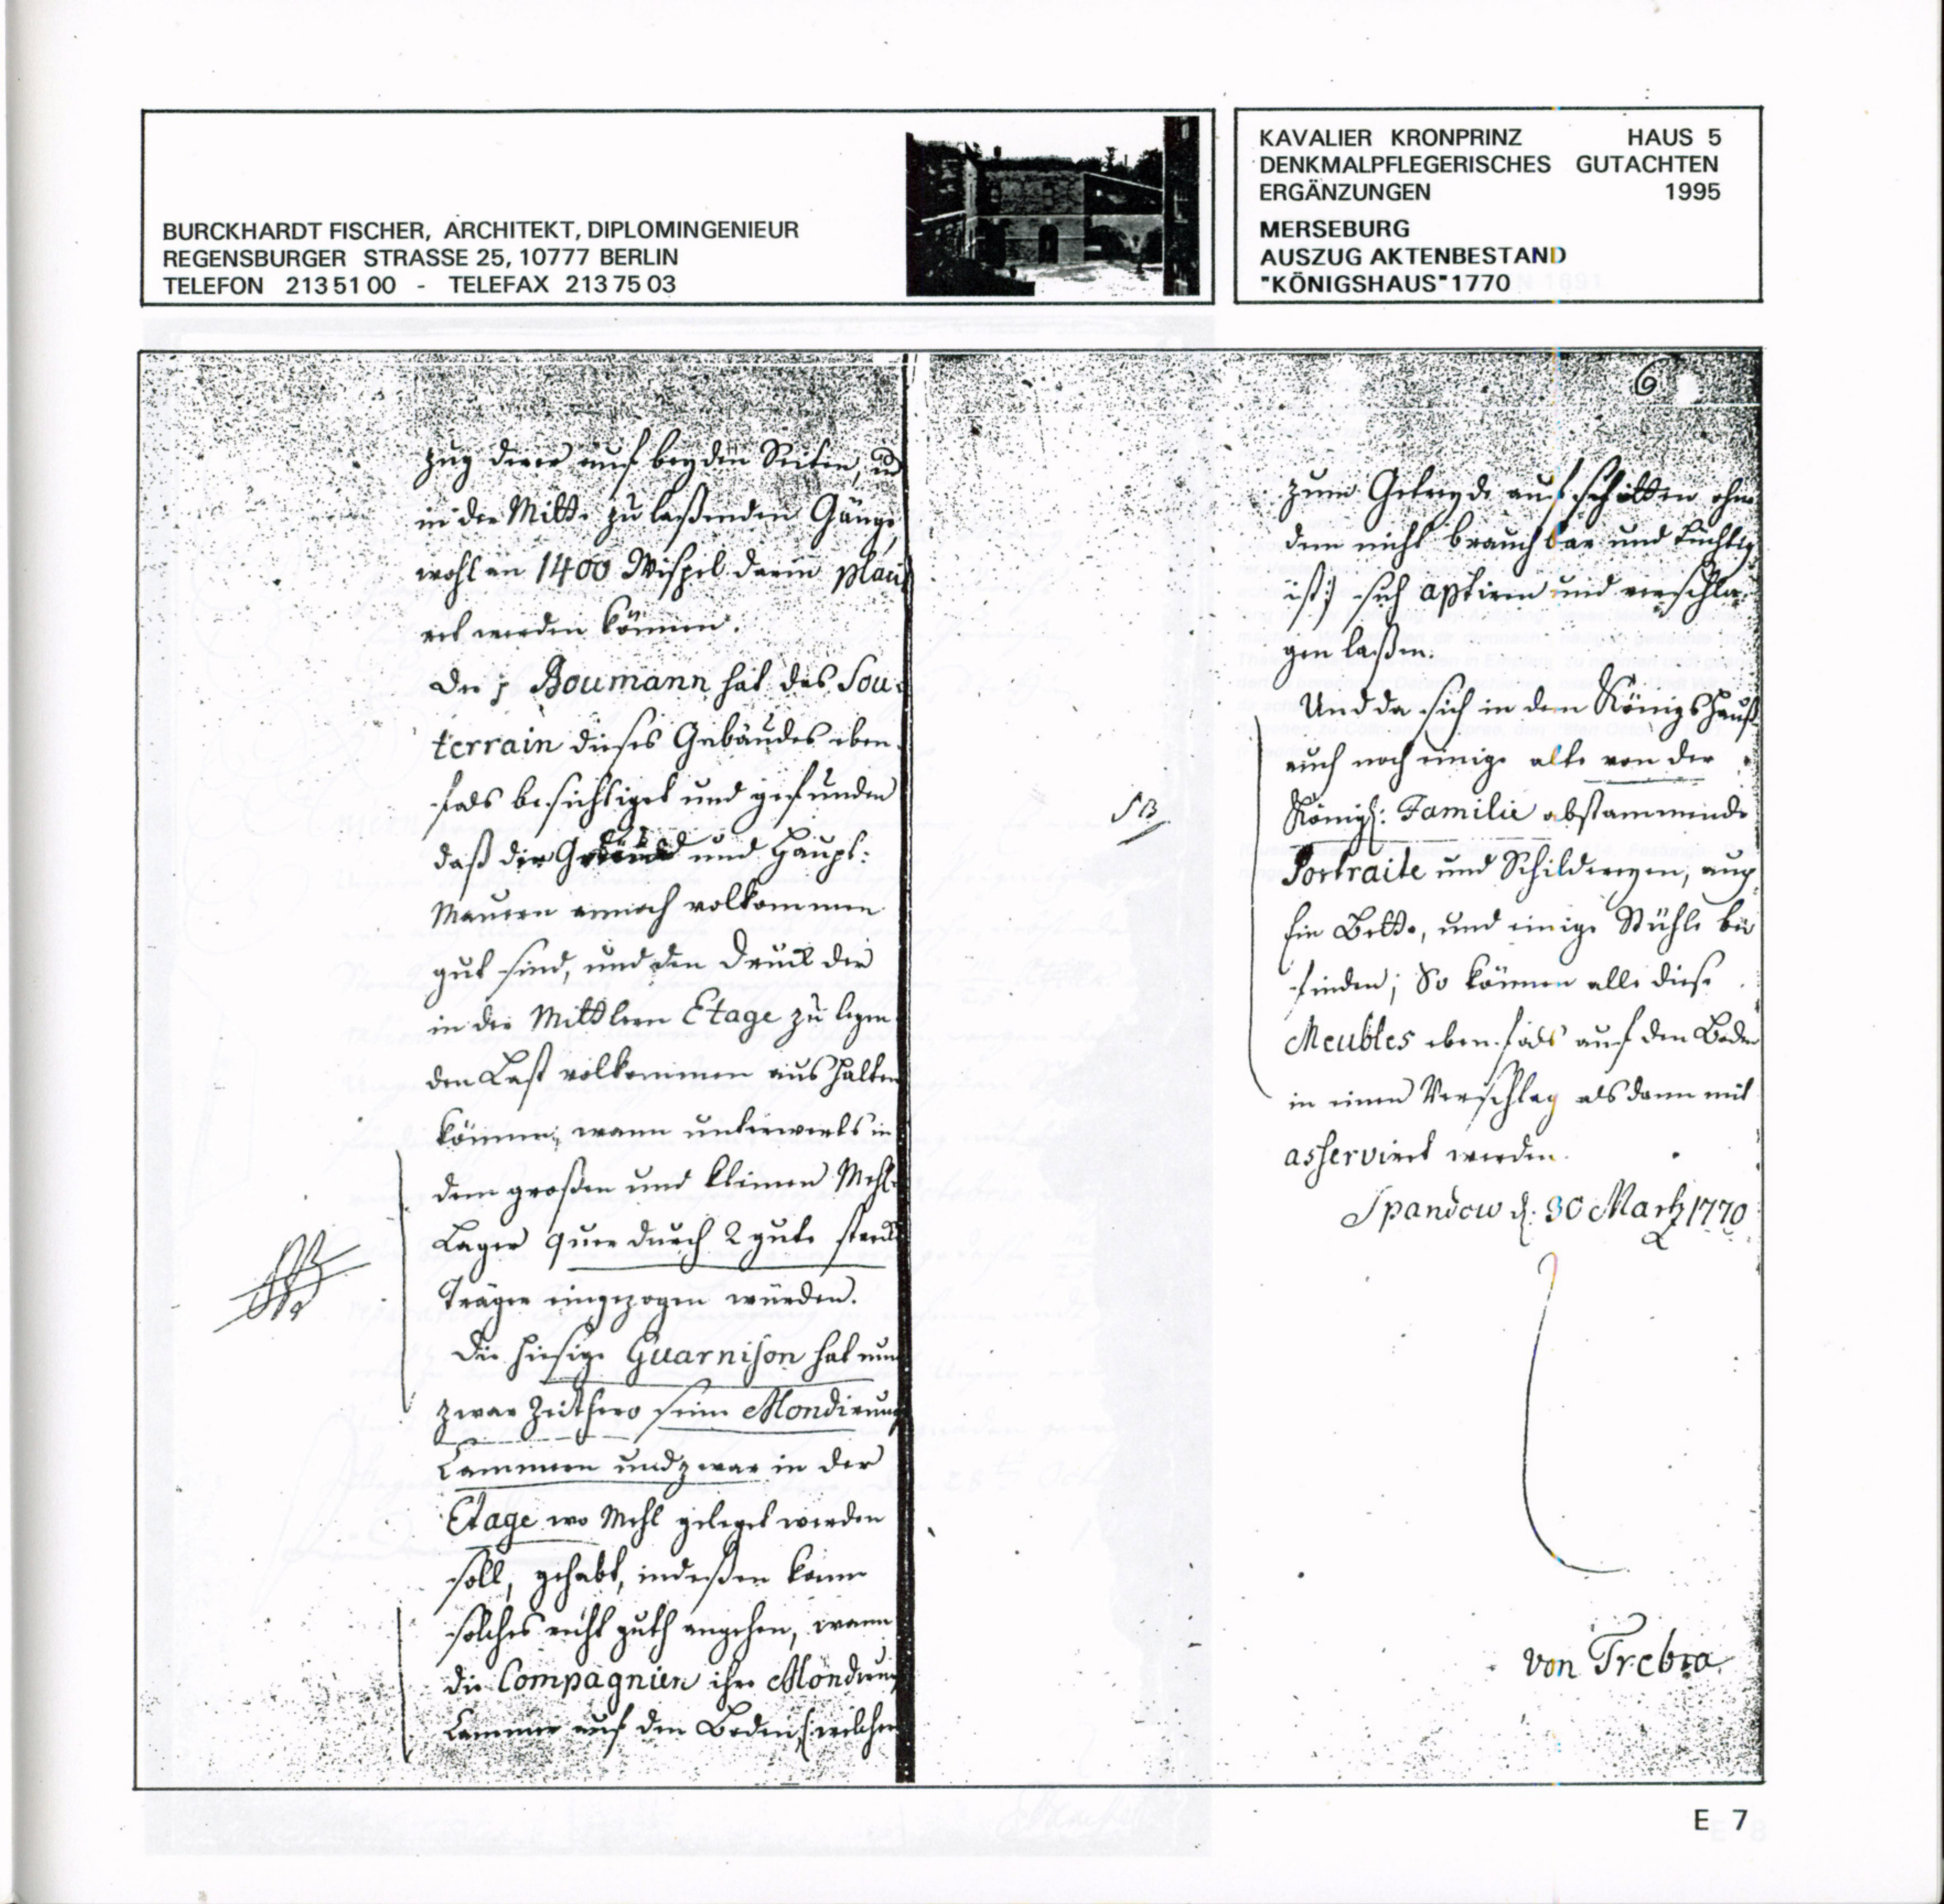 BURCKHARDT FISCHER, ARCHITEKT, DIPLOMINGENIEUR
REGENSBURGER STRASSE 25, 10777 BERLIN
TELEFON 213 51 00 - TELEFAX 213 75 03
KAVALIER KRONPRINZ HAUS 5
DENKMALPFLEGERISCHES GUTACHTEN
ERGÄNZUNGEN 1995
MERSEBURG
AUSZUG AKTENBESTAND
"KÖNIGSHAUS" 1770
zug derer auf beyden Seiten, und
in der Mitte zu laßenden Gänge,
wohl an 1400 Wispel darin placi
ret werden können.
Der p Boumann hat das Sou-
terrain dieses Gebäudes eben-
fals besichtiget und gefunden
daß der und Haupt:
Mauern annoch volkommen
gut sind, und den Druck der
in der Mittlern Etage zu legen-
den Last volkommen aushalten
können, wann unterwerts in
dem großen und kleinen Mehl-
Lager quer durch 2 gute starke
Träger eingezogen würden.
Die hiesige Guarnison hat nun
zwar zeithero seine Mondirung
Cammern und zwar in der
Etage wo Mehl geleget werden
soll, gehabt, indeßen kann
solches nicht guth angehen, wann
die Compagnien ihre Mondirung
Cammer auf den Boden, (: welcher
6
zum Getreyde aufschütten ohne
dem nicht brauchbar und tüchtig
ist:) sich aptiren und verschla-
gen laßen.
Und da sich in dem Königs Hauß
auch noch einige alte von der
Königl: Familie abstammende
Portraite und Schildereyen, auch
Ein Bette, und einige Stühle be
finden; So können alle diese
Meubles ebenfals auf den Boden
in einen Verschlag alsdann mit
asserviret werden.
Spandow d: 30 Martz 1770
von Trebra
E 7